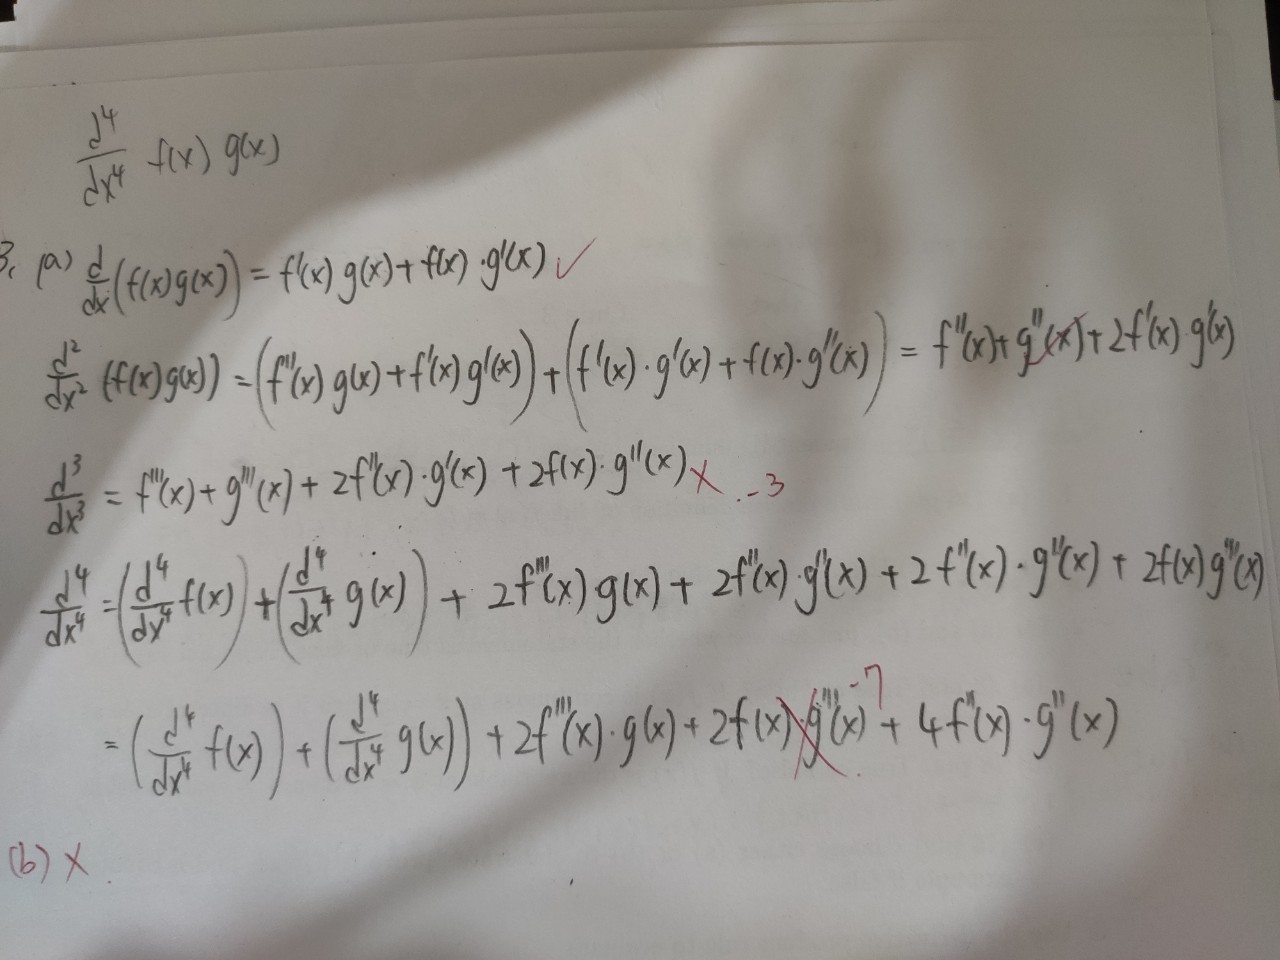 d⁴/dx⁴ f(x) g(x)
3. (a) d/dx (f(x)g(x)) = f'(x) g(x) + f(x) · g'(x) ✓
d²/dx² (f(x)g(x)) = (f''(x) g(x) + f'(x) g'(x)) + (f'(x) · g'(x) + f(x) · g''(x)) = f''(x) + g''(x) + 2f'(x) · g'(x)
d³/dx³ = f'''(x) + g'''(x) + 2f''(x) · g'(x) + 2f(x) · g''(x) X -3
d⁴/dx⁴ = (d⁴/dx⁴ f(x)) + (d⁴/dx⁴ g(x)) + 2f'''(x) g(x) + 2f''(x) · g''(x) + 2f''(x) · g''(x) + 2f(x) g'''(x)
= (d⁴/dx⁴ f(x)) + (d⁴/dx⁴ g(x)) + 2f'''(x) · g(x) + 2f(x) · g'''(x) -7 + 4f''(x) · g''(x)
(b) X